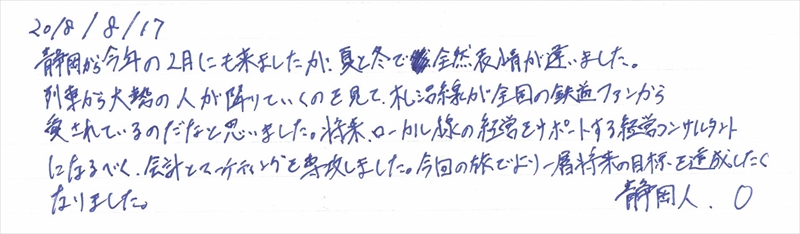 2018/8/17
静岡から今年の2月にも来ましたが、夏と冬で全然表情が違いました。
列車から大勢の人が降りていくのを見て、札沼線が全国の鉄道ファンから
愛されているのだなと思いました。将来、ローカル線の経営をサポートする経営コンサルタント
になるべく、会計とマーケティングを専攻しました。今回の旅でより一層将来の目標を達成したく
なりました。
静岡人、O